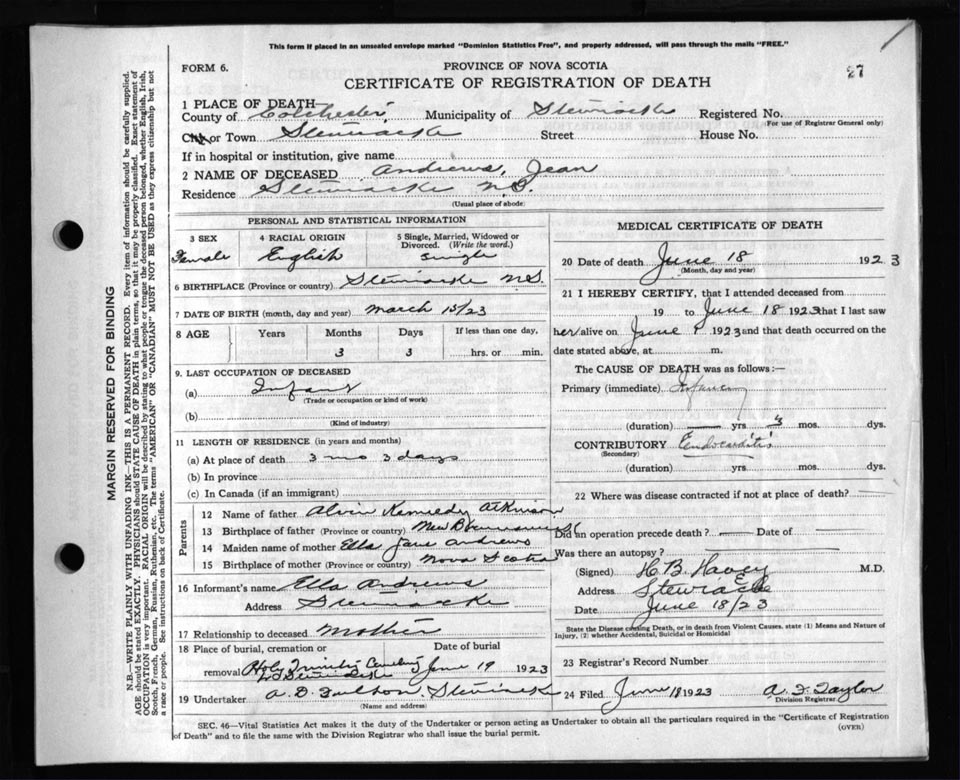 This form if placed in an unsealed envelope marked "Dominion Statistics Free", and properly addressed, will pass through the mails "FREE."
FORM 6.
PROVINCE OF NOVA SCOTIA
27
CERTIFICATE OF REGISTRATION OF DEATH
1 PLACE OF DEATH—
County of Colchester, Municipality of Stewiacke Registered No.
(For use of Registrar General only)
City or Town Stewiacke Street House No.
If in hospital or institution, give name
2 NAME OF DECEASED Andrews, Jean
Residence Stewiacke N.S.
(Usual place of abode)
PERSONAL AND STATISTICAL INFORMATION
3 SEX 4 RACIAL ORIGIN 5 Single, Married, Widowed or Divorced. (Write the word.)
Female English Single
6 BIRTHPLACE (Province or country) Stewiacke N.S.
7 DATE OF BIRTH (month, day and year) March 15/23
8 AGE Years Months Days If less than one day,
3 3 hrs. or min.
9. LAST OCCUPATION OF DECEASED
(a) Infant
(Trade or occupation or kind of work)
(b)
(Kind of industry)
11 LENGTH OF RESIDENCE (in years and months)
(a) At place of death 3 mo 3 days
(b) In province
(c) In Canada (if an immigrant)
Parents
12 Name of father Alvin Kennedy Atkinson
13 Birthplace of father (Province or country) New Brunswick
14 Maiden name of mother Ella Jane Andrews
15 Birthplace of mother (Province or country) Nova Scotia
16 Informant's name Ella Andrews
Address Stewiacke
17 Relationship to deceased Mother
18 Place of burial, cremation or removal Date of burial
Holy Trinity Cemetery June 19 1923
19 Undertaker A. D. Fulton, Stewiacke
(Name and address)
MEDICAL CERTIFICATE OF DEATH
20 Date of death June 18 1923
(Month, day and year)
21 I HEREBY CERTIFY, that I attended deceased from
19 to June 18 1923 that I last saw
her alive on June 1923 and that death occurred on
date stated above, at m.
The CAUSE OF DEATH was as follows:—
Primary (immediate) Infancy
(duration) yrs 3 mos. dys.
CONTRIBUTORY Endocarditis
(Secondary)
(duration) yrs. mos. dys.
22 Where was disease contracted if not at place of death?
Did an operation precede death? Date of
Was there an autopsy?
(Signed) H. B. Havey M.D.
Address Stewiacke
Date June 18/23
State the Disease causing Death, or in death from Violent Causes, state (1) Means and Nature of
Injury, (2) whether Accidental, Suicidal or Homicidal
23 Registrar's Record Number
24 Filed June 18 1923 A. F. Taylor
Division Registrar
SEC. 46—Vital Statistics Act makes it the duty of the Undertaker or person acting as Undertaker to obtain all the particulars required in the "Certificate of Registration
of Death" and to file the same with the Division Registrar who shall issue the burial permit.
(OVER)
MARGIN RESERVED FOR BINDING
N.B.—WRITE PLAINLY WITH UNFADING INK—THIS IS A PERMANENT RECORD. Every item of information should be carefully supplied.
AGE should be stated EXACTLY. PHYSICIANS should STATE CAUSE OF DEATH in plain terms, so that it may be properly classified. Exact statement of
OCCUPATION is very important. RACIAL ORIGIN will be described by stating to what people or tongue the deceased person belonged, whether English, Irish,
Scotch, French, German, Russian, Ruthenian, etc. The terms "AMERICAN" OR "CANADIAN" MUST NOT BE USED as they express citizenship but not
a race or people. See instructions on back of Certificate.